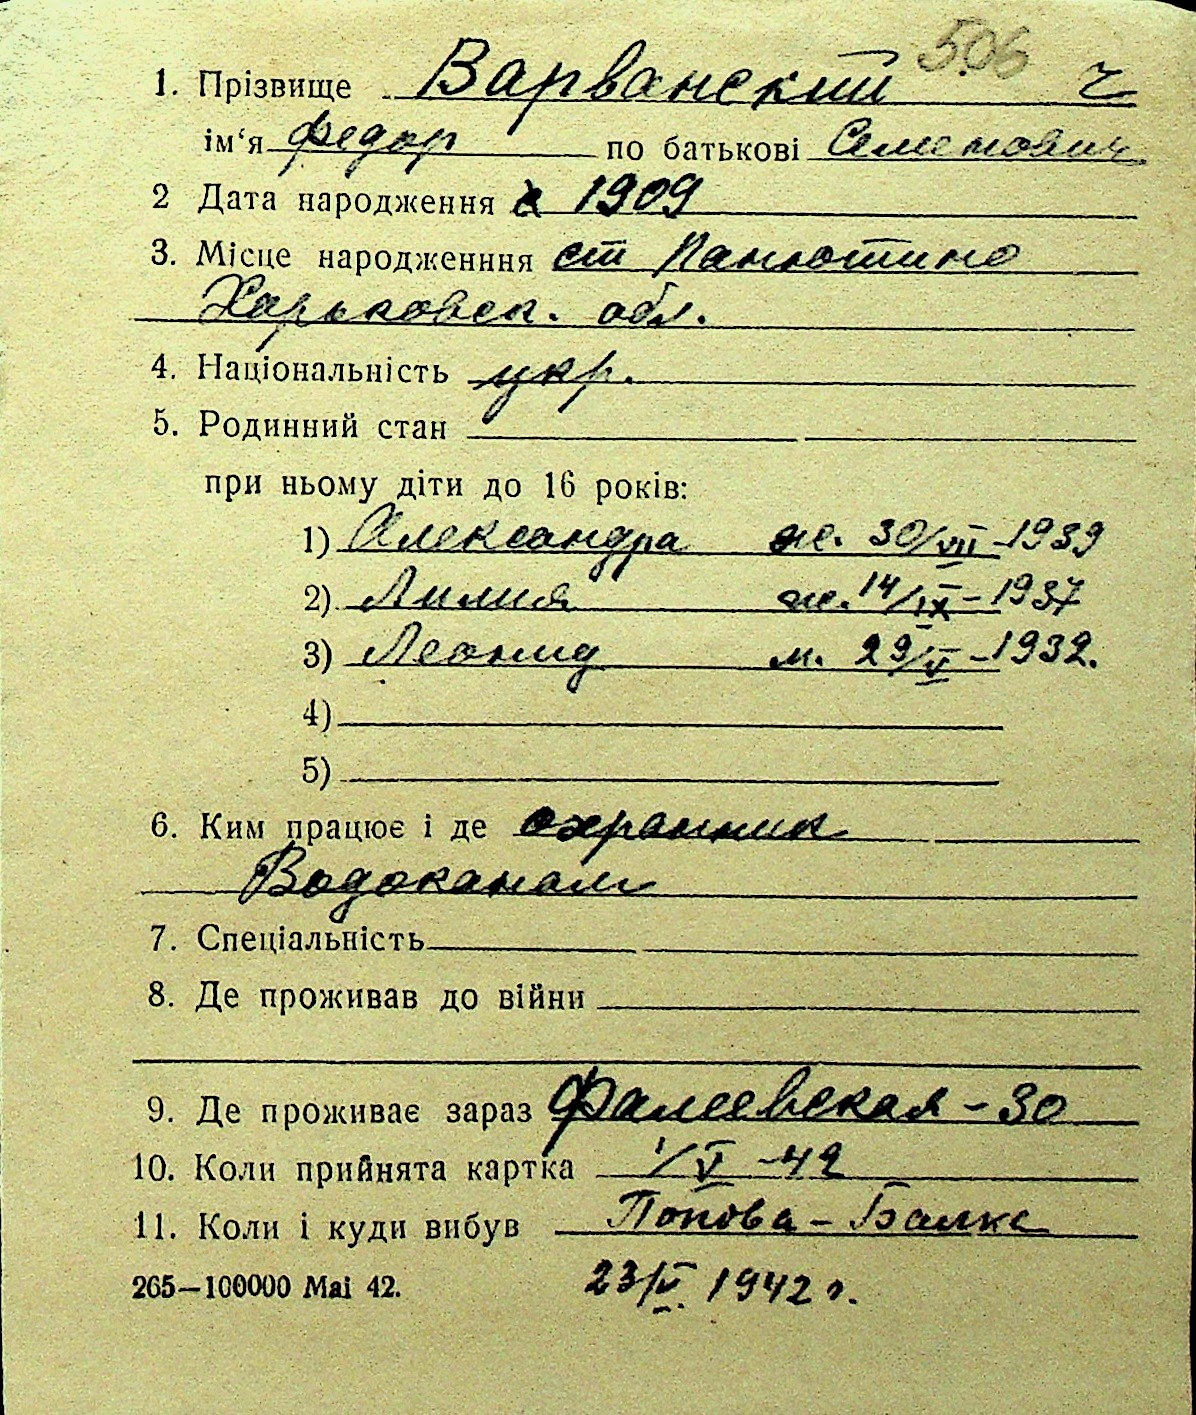 506
1. Прізвище Варванский ч
ім‘я Федор по батькові Семенович
2 Дата народження 1909
3. Місце народженння ст Панютино
Харьковск. обл.
4. Національність укр.
5. Родинний стан
при ньому діти до 16 років:
1) Александра ж. 30/VII-1939
2) Лилия ж. 14/IX-1937
3) Леонид м. 29/V-1932.
4)
5)
6. Ким працює і де охранник
Водоканал
7. Спеціальність
8. Де проживав до війни
9. Де проживає зараз Фалеевская-30
10. Коли прийнята картка 1/V-42
11. Коли і куди вибув Попова-Балка
265—100000 Mai 42. 23/V 1942 г.